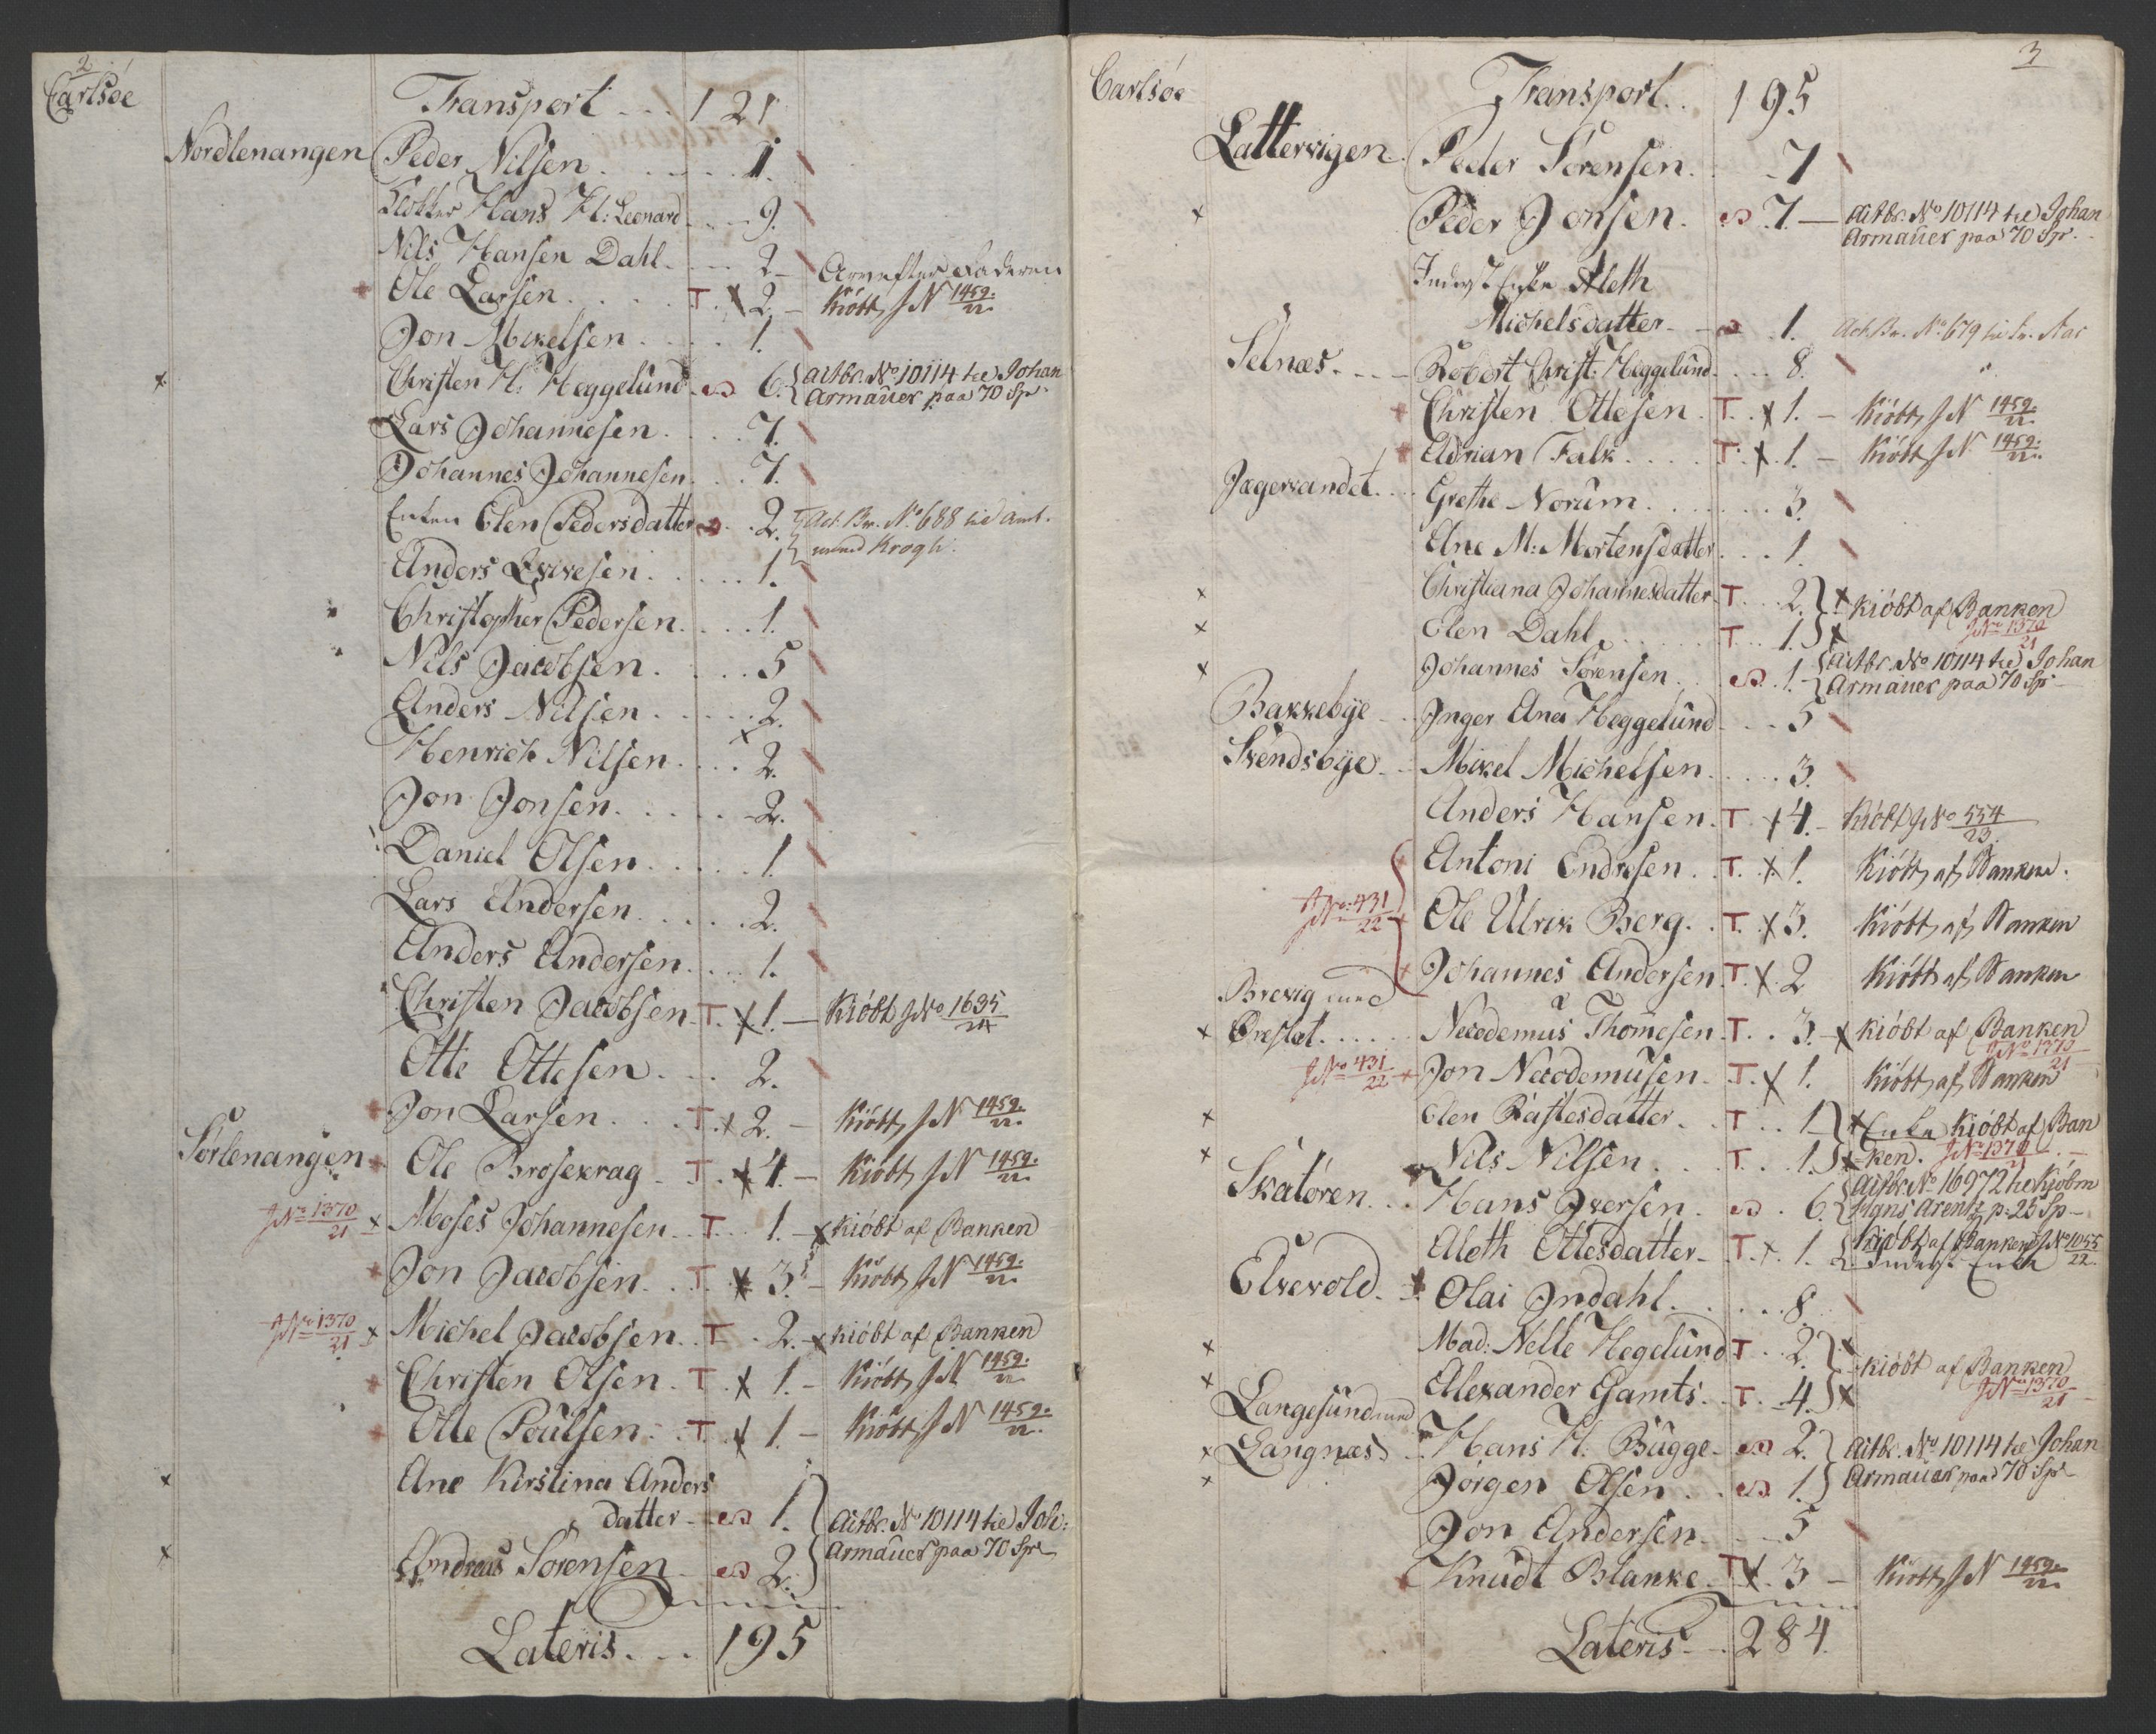 2
Carlsöe
Transport . . . 121
Nordlenangen Peder Nilsen . . . . . . 1.
Klokker Hans H: Leonard . . . 9.
Nils Hansen Dahl . . . 2 – Arv efter Faderen
Ole Larsen . . . . T. x 2. – Kiöbt J N 1459./22.
Jon Mikelsen . . . . . 1.
x Christen H: Heggelund . . 6. { Actbr. No 10114 til Johan
Armauer paa 70 Spr.
Lars Johannesen . . . . 7.
Johannes Johannesen . . . 7.
Enken Elen Pedersdatter . . 2. Act. Br. No. 688 til Amt-
mand Krogh.
Anders . . . . . 1.
Christopher Pedersen . . . . 1.
Nils Jacobsen . . . . 5
Anders Nilsen . . . . . 2.
Henrich Nilsen . . . . 2.
Jon Jonsen . . . . . . 2.
Daniel Olsen . . . . . 1.
Lars Andersen . . . . . 2.
Anders Andersen . . . . 1.
Christen Jacobsen . T. x 1. – Kiöbt J No 1635/24
Otte Ottesen . . . 2.
Jon Larsen . . . . T. x 2. – Kiöbt J N 1459./22.
Sörlenangen Ole Brosekrag . T. x 4. – Kiöbt J N 1459./22.
J No 1370/21 x Moses Johannesen . . T . . 1. – x kiöbt af Banken
Jon Jacobsen . . . T. x 3. – Kiöbt J N 1459./22.
J No 1370/21 x Michel Jacobsen . . T . . 2. – x kiöbt af Banken
Christen Olsen . T. x 1. – Kiöbt J N 1459./22.
Olle Poulsen . . T. x 1. – Kiöbt J N 1459./22.
x Ane Kirstina Anders
datter . . 1. } Actbr. No 10114 til Joh:
x Andreas Sörensen . . 2. } Armauer paa 70 Spr
Lateris . . . 195
3
Carlsöe
Transport . . 195
Lattervigen . Peder Sörensen . . . 7
x Peder Jonsen . . 7. – Actbr. No 10114 til Johan
Armauer paa 70 Spr. –
Inderst Enke Aleth
Michelsdatter . . . 1. Act Br. No. 679 til
Selnæs . . . . Robert Christ: Heggelund . . . . 8.
Christen Ottesen . T. . x 1. – Kiöbt J N 1459./22.
Adrian Falk . . . . T. x . 1. – Kiöbt J N 1459./22.
Jægervandet . . . Grethe Norum . . . . . . 3.
Ane M: Mortensdatter . . . . 1.
x Christiana Johannesdatter . T . . . 2. } x kiöbt af Banken
x Elen Dahl . . . . . T . . 1. } x J No 1370/21
x Johannes Sörensen . . . 1. { Actbr. No 10114 til Johan
Armauer paa 70 Spr –
Bakkebye . . Inger Ana Heggelund . . . 5
Svendsbye . . . Mikel Michelsen . . . . . 3.
Anders Hansen . T . x 4. – Kiöbt J No 554/23.
Antoni Endresen . . T. . x 1. Kiöbt af Banken.
J No. 431/22 Ole Ulrik Berg . . T. . x 3. Kiöbt af Banken
Johannes Andersen . T. x . 2 Kiöbt af Banken
Brevig med
x Örestet . . . . . . Necodemus Thomesen . T. . . 3. – x kiöbt af Banken
J No 1370/21
J No 431/22 Jon Necodemusen . . T. x 1. Kiöbt af Banken
x Elen Rastesdatter . . T . . 1. } x Enke kiöbt af Ban
x Nils Nilsen . . . . T. . . 1. } x ken. J No 1370/21 –
Skatören . . . Hans Iversen . . . 6. { Actbr. No 16972 til Kjöbm
Mgns Arentz p: 25 Sp –
Aleth Ottesdatter . . T. x . 1. { Kiöbt af Banken J No 1055/22.
Inderst Enke
Elvevold . . . Olai Indahl . . . . . 8.
x Mad: Nelle Hegelund T . . . 2. } x
kiöbt af Banken
x Alexander Gamts . . T. . . 4. } x J No 1370/21
Langesund med
x Gangnæs . . . Hans H: Bugge . . 2. } Actbr. No 10114 til Johan
x Jörgen Olsen . . . 1. } Armauer paa 70 Spr –
Jon Andersen . . . . 5
Knudt Blanke . . T. x . 3 – Kiöbt J N 1459./22.
Lateris . . . 284.